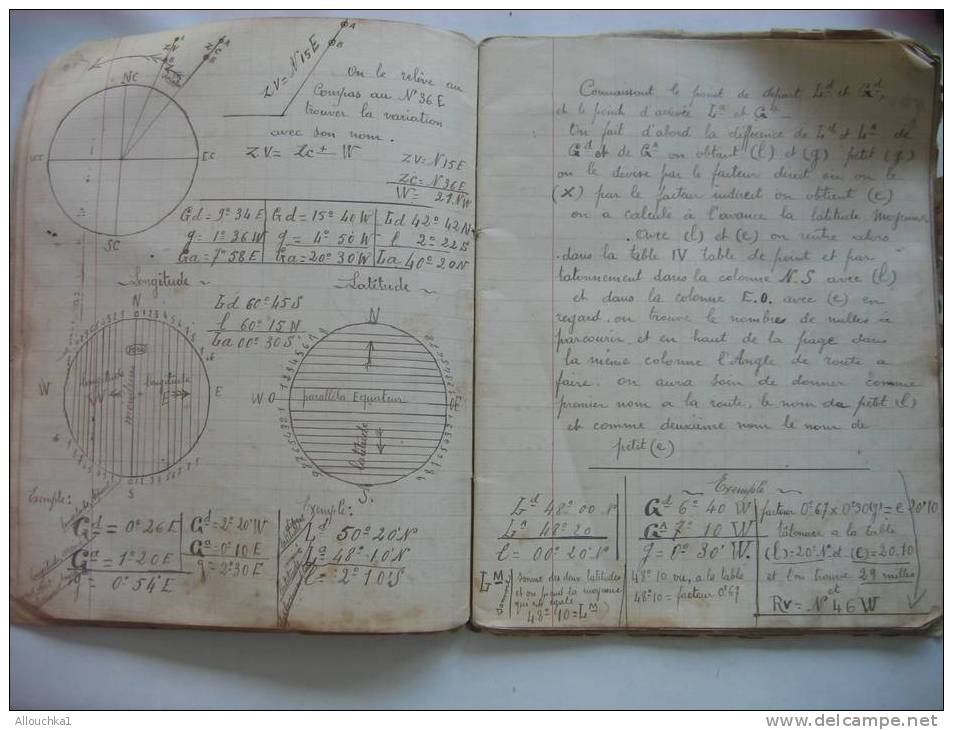 NC
EC
SC
ZV = N 15 E
A
B
On le relève au
Compas au N 36 E
trouver la variation
avec son nom.
ZV = Zc ± W
ZV = N 15 E
ZC = N 36 E
W = 21 N W
Gd = 9° 34 E
g = 1° 36 W
Ga = 7° 58 E
Gd = 15° 40 W
g = 4° 50 W
Ga = 20° 30 W
Ld 42° 42 N
l 2° 22 S
La 40° 20 N
Longitude
Latitude
Ld 60° 45 S
l 60° 15 N
La 00° 30 S
N
W
E
S
longitude
W
meridien
longitude
E
N
W O
E
S
parallèle Equateur
latitude
Exemple:
Gd = 0° 26 E
Ga = 1° 20 E
g = 0° 54 E
Gd = 2° 20 W
Ga = 0° 10 E
g = 2° 30 E
Exemple:
Ld 50° 20 N
La 48° 10 N
l = 2° 10 S
Connaissant le point de depart Ld et Gd,
et le point d'arrivée La et Ga
On fait d'abord la différence de Ld et La de
Gd et de Ga on obtient (l) et (g) petit (g)
on le devise par le facteur direct ou on le
(X) par le facteur indirect on obtient (e)
on a calculé à l'avance la latitude moyenne
avec (l) et (e) on rentre alors
dans la table IV table de point et par
tatonnement dans la colonne N.S avec (l)
et dans la colonne E.O. avec (e) en
regard on trouve le nombres de milles à
parcourir, et en haut de la page dans
la même colonne l'Angle de route a
faire. on aura soin de donner comme
premier nom a la route, le nom de petit (l)
et comme deuxième nom le nom de
petit (e)
Exemple
Ld 48° 00 N
La 48° 20
l = 00° 20' N
Lm
somme des deux latitudes
et on prend la moyenne
qui est égale
48° 10 = Lm
Gd 6° 40 W
Ga 7° 10 W
g = 0° 30' W.
48° 10 vu, a la table
48° 10 = facteur 0'67
facteur 0'67 x 0°30g = e 20'10
tâtonner a la table
(l) = 20' N. et (e) = 20.10
et l'on trouve 29 milles
et
Rv = N 46 W
Allouchka1
www.delcampe.net